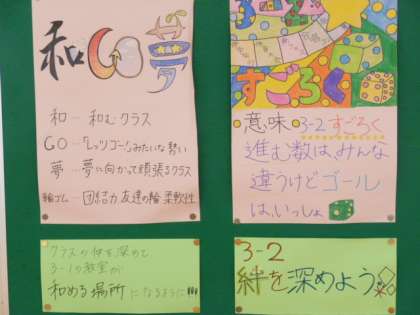 和GO夢
和…和むクラス
GO…「レッツゴー!」みたいな勢い
夢…夢に向かって頑張るクラス
輪ゴム…団結力 友達の輪 柔軟性
クラスの仲を深めて
3-1の教室が
和める場所になるように!!!
すごろく
意味 3-2 すごろく
進む数は、みんな
違うけどゴール
は、いっしょ
3-2
絆を深めよう